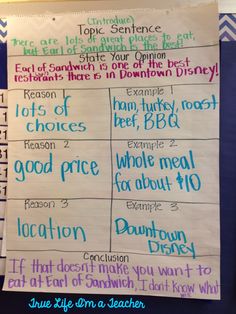 (Introduce)
Topic Sentence
There are lots of great places to eat,
but Earl of Sandwich is the best!
State Your Opinion
Earl of Sandwich is one of the best
restaraunts there is in Downtown Disney!
Reason 1
Example 1
lots of
choices
ham, turkey, roast
beef, BBQ
Reason 2
Example 2
good price
Whole meal
for about $10
Reason 3
Example 3
location
Downtown
Disney
Conclusion
If that doesn't make you want to
eat at Earl of Sandwich, I don't know what
True Life I'm a Teacher